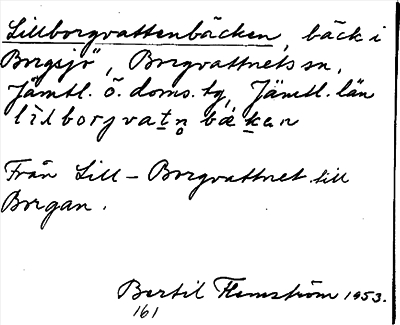 Lillborgvattenbäcken, bäck i
Borgsjö, Borgvattnets sn,
Jämtl. ö. doms. tg, Jämtl. län
lìlborjvatn̥ bækən
Från Lill-Borgvattnet till
Borgan.
Bertil Flemström 1953.
161